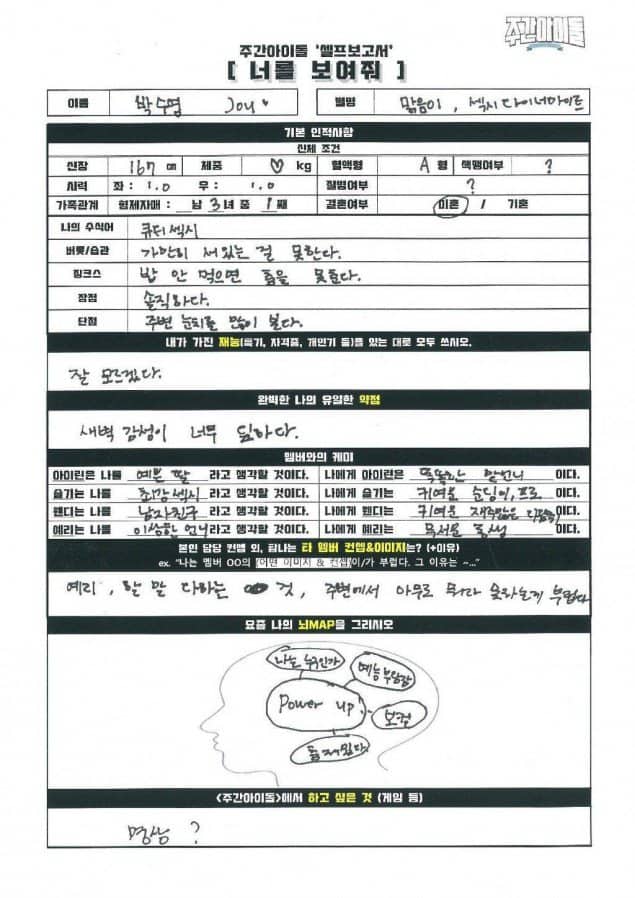 주간아이돌
주간아이돌 '셀프보고서'
[ 너를 보여줘 ]
이름 박수영 Joy♥ 별명 맑음이, 섹시다이너마이트
기본 인적사항
신체 조건
신장 167 cm 체중 ♡ kg 혈액형 A 형 색맹여부 ?
시력 좌 : 1.0 우 : 1.0 질병여부 ?
가족관계 형제자매 : 남 3 녀 중 1 째 결혼여부 미혼 / 기혼
나의 수식어 큐티섹시
버릇/습관 가만히 서있는 걸 못한다.
징크스 밥 안 먹으면 춤을 못춘다.
장점 솔직하다.
단점 주변 눈치를 많이 본다.
내가 가진 재능(특기, 자격증, 개인기 등)을 있는 대로 모두 쓰시오.
잘 모르겠다.
완벽한 나의 유일한 약점
새벽 감성이 너무 딥하다.
멤버와의 케미
아이린은 나를 예쁜 딸 라고 생각할 것이다. 나에게 아이린은 똑똑한 할머니 이다.
슬기는 나를 최강섹시 라고 생각할 것이다. 나에게 슬기는 귀여운 순딩이, 프로 이다.
웬디는 나를 남자친구 라고 생각할 것이다. 나에게 웬디는 귀여운 재주많은 다람쥐 이다.
예리는 나를 이상한 언니 라고 생각할 것이다. 나에게 예리는 무서운 동생 이다.
본인 담당 컨셉 외, 탐나는 타 멤버 컨셉&이미지는? (+이유)
ex. "나는 멤버 OO의 [어떤 이미지 & 컨셉]이/가 부럽다. 그 이유는 ~..."
예리, 할 말 다하는 것, 주변에서 아무도 뭐라 못하는게 부럽다
요즘 나의 뇌MAP을 그리시오
나는 누구인가
예능 부담감
Power up!
보컬
춤 재밌다
<주간아이돌>에서 하고 싶은 것 (게임 등)
명상 ?